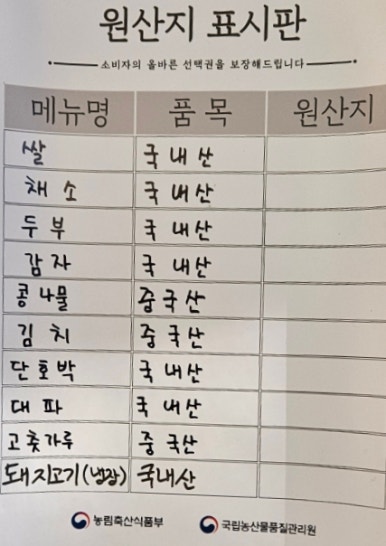 원산지 표시판
소비자의 올바른 선택권을 보장해드립니다
메뉴명 품목 원산지
쌀 국내산
채소 국내산
두부 국내산
감자 국내산
콩나물 중국산
김치 중국산
단호박 국내산
대파 국내산
고춧가루 중국산
돼지고기(냉장) 국내산
농림축산식품부 국립농산물품질관리원